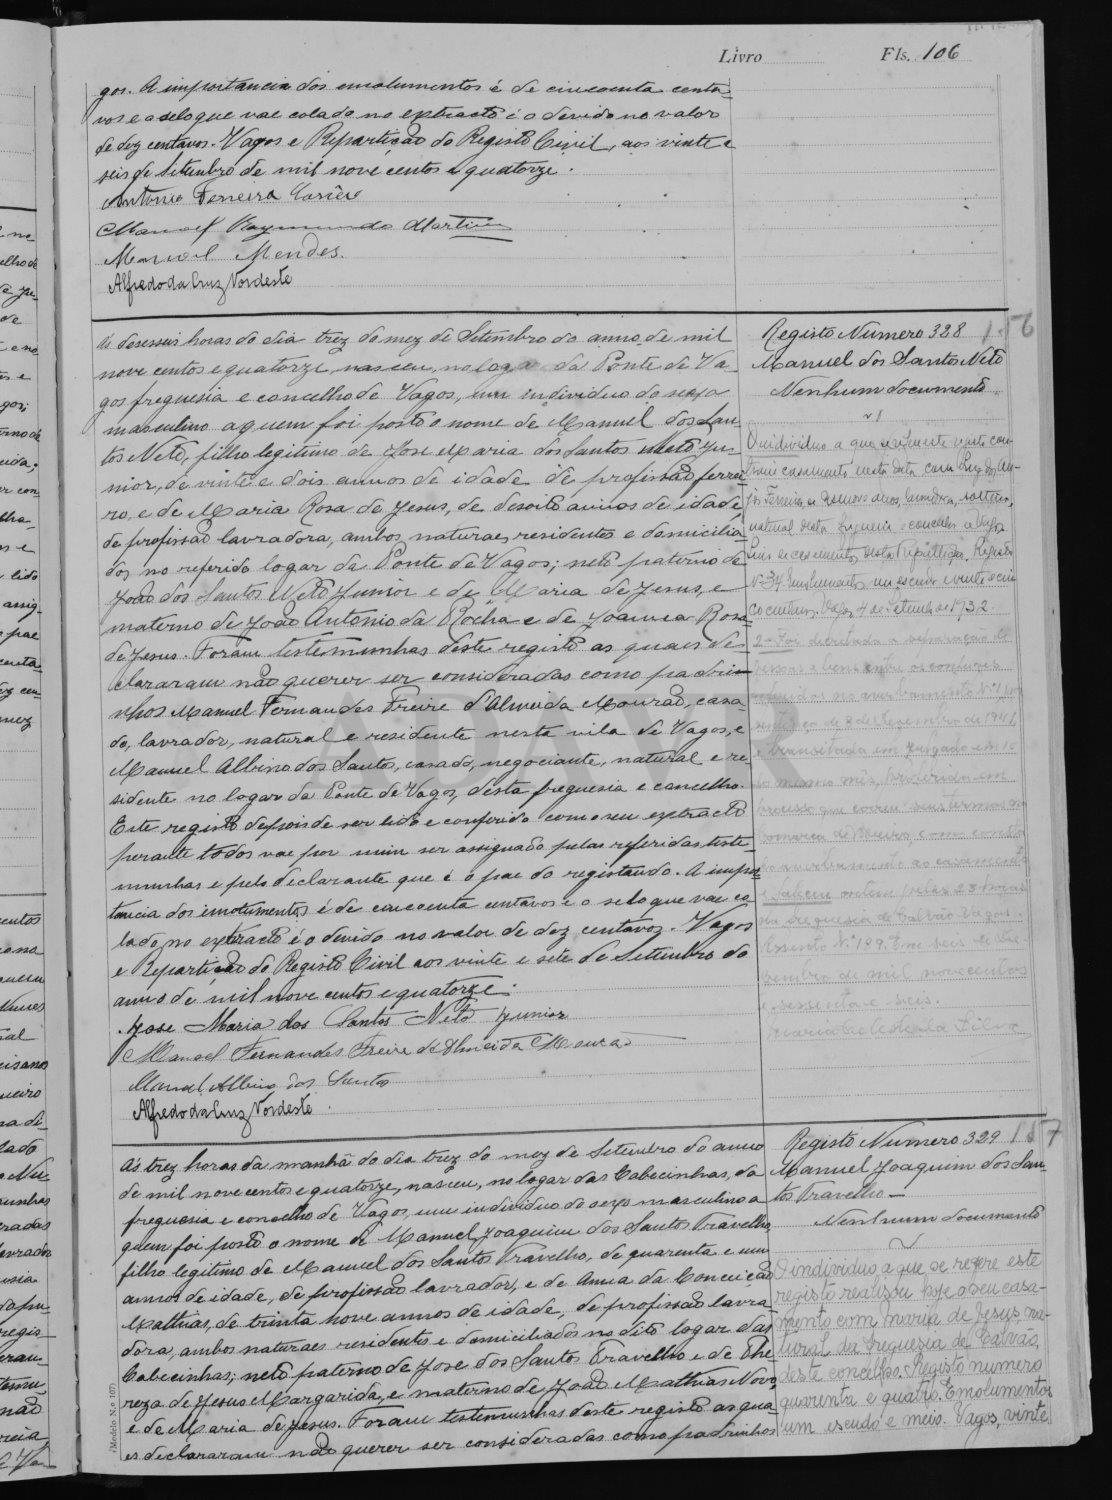 Livro Fls. 106
gos. A importancia dos emolumentos é de cincoenta centa-
vos e o selo que vae colado no extracto é o devido no valor
de dez centavos. Vagos e Repartição do Registo Civil, aos vinte e
seis de Setembro de mil nove centos e quatorze.
Antonio Ferreira
Manoel Raymundo Martins
Manuel Mendes.
Alfredo da Cruz Nordeste
Ás desesseis horas do dia trez do mez de Setembro do anno de mil
nove centos e quatorze, nasceu, no logar da Ponte de Va-
gos freguesia e concelho de Vagos, um individuo do sexo
masculino a quem foi posto o nome de Manuel dos San-
tos Neto, filho legitimo de José Maria dos Santos Neto Ju-
nior, de vinte e dois annos de idade de profissão ferrei-
ro, e de Maria Rosa de Jesus, de desoito annos de idade,
de profissão lavradora, ambos naturaes, residentes e domicilia-
dos no referido logar da Ponte de Vagos; neto paterno de
João dos Santos Neto Junior e de Maria de Jesus, e
materno de João Antonio da Rocha e de Joanna Rosa
de Jesus. Foram testemunhas deste registo as quaes de-
clararam não querer ser consideradas como padri-
nhos Manuel Fernandes Freire d'Almeida Mourão, casa-
do, lavrador, natural e residente nesta vila de Vagos, e
Manuel Albino dos Santos, casado, negociante, natural e re-
sidente no logar da Ponte de Vagos, desta freguesia e concelho.
Este registo depois de ser lido e conferido com o seu extracto
perante todos vae por mim ser assignado pelas referidas teste-
munhas e pelo declarante que é o pae do registando. A impor-
tancia dos emolumentos é de cincoenta centavos e o selo que vae co-
lado no extracto é o devido no valor de dez centavos. Vagos
e Repartição do Registo Civil aos vinte e sete de Setembro do
anno de mil nove centos e quatorze.
José Maria dos Santos Neto Junior
Manoel Fernandes Freire de Almeida Mourão
Manuel Albino dos Santos
Alfredo da Cruz Nordeste
Registo Numero 328 156
Manuel dos Santos Neto
Nenhum documento
O individuo a que
casamento nesta data com
natural desta freguesia e concelho de Vagos.
Registo
Nº 34 Emolumentos um escudo e vinte e cin-
co centavos. Vagos, 4 de Setembro de 1932.
2 - Foi decretada a separação de
pessoas e bens entre os conjuges
referidos no averbamento Nº 1 por
sentença de 3 de Dezembro de 1941
e transitada em julgado em 16
do mesmo mês, proferida em
processo que correu seus termos na
comarca de
averbamento ao casamento
Faleceu ontem pelas 23 horas
na freguesia de Calvão Vagos.
Assento Nº 189. Em seis de
de mil novecentos
e sessenta e seis.
Ás trez horas da manhã do dia trez do mez de Setembro do anno
de mil nove centos e quatorze, nasceu, no logar das Cabecinhas, da
freguesia e concelho de Vagos, um individuo do sexo masculino a
quem foi posto o nome de Manuel Joaquim dos Santos Travelho,
filho legitimo de Manuel dos Santos Travelho, de quarenta e um
annos de idade, de profissão lavrador, e de Anna da Conceição
Mathias, de trinta nove annos de idade, de profissão lavra-
dora, ambos naturaes residentes e domiciliados no dito logar das
Cabecinhas; neto paterno de José dos Santos Travelho e de The-
reza de Jesus Margarida, e materno de João Mathias Novo
e de Maria de Jesus. Foram testemunhas deste registo as qua-
es declararam não querer ser consideradas como padrinhos
Registo Numero 329 157
Manuel Joaquim dos San-
tos Travelho
Nenhum documento
O individuo a que se refere este
registo realizou hoje o seu casa-
mento com Maria de Jesus, na-
tural da freguesia de Calvão,
deste concelho. Registo numero
quarenta e quatro. Emolumentos
um escudo e meio. Vagos, vinte
(Modelo N.º 107)